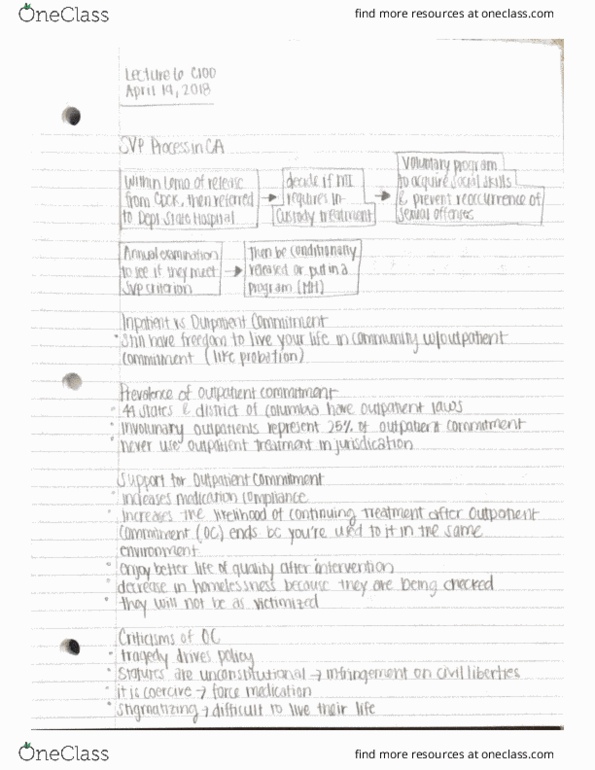 OneClass
find more resources at oneclass.com
Lecture 6 C100
April 19, 2018
SVP Process in CA
Within 6mo of release
from CDCR, then referred
to Dept State Hospital
decide if MI
requires in-
custody treatment
Voluntary program
to acquire social skills
& prevent reoccurrence of
sexual offenses
Annual examination
to see if they meet
SVP criterion
Then be conditionally
released or put in a
program (MH)
Inpatient vs Outpatient Commitment
• Still have freedom to live your life in community w/outpatient
commitment (like probation)
Prevalence of outpatient commitment
• 41 states & district of columbia have outpatient laws
• Involunary outpatients represent 25% of outpatient commitment
• never use outpatient treatment in jurisdication
Support for Outpatient Commitment
• increases medication compliance
• Increases the likelihood of continuing treatment after outpatient
commitment (OC) ends bc you're used to it in the same
environment
• enjoy better life of quality after intervention
• decrease in homelessness because they are being checked
• they will not be as victimized
Criticisms of OC
• tragedy drives policy
• Statutes are unconstitutional → infringement on civil liberties
• it is coercive → force medication
• Stigmatizing → difficult to live their life
OneClass
find more resources at oneclass.com